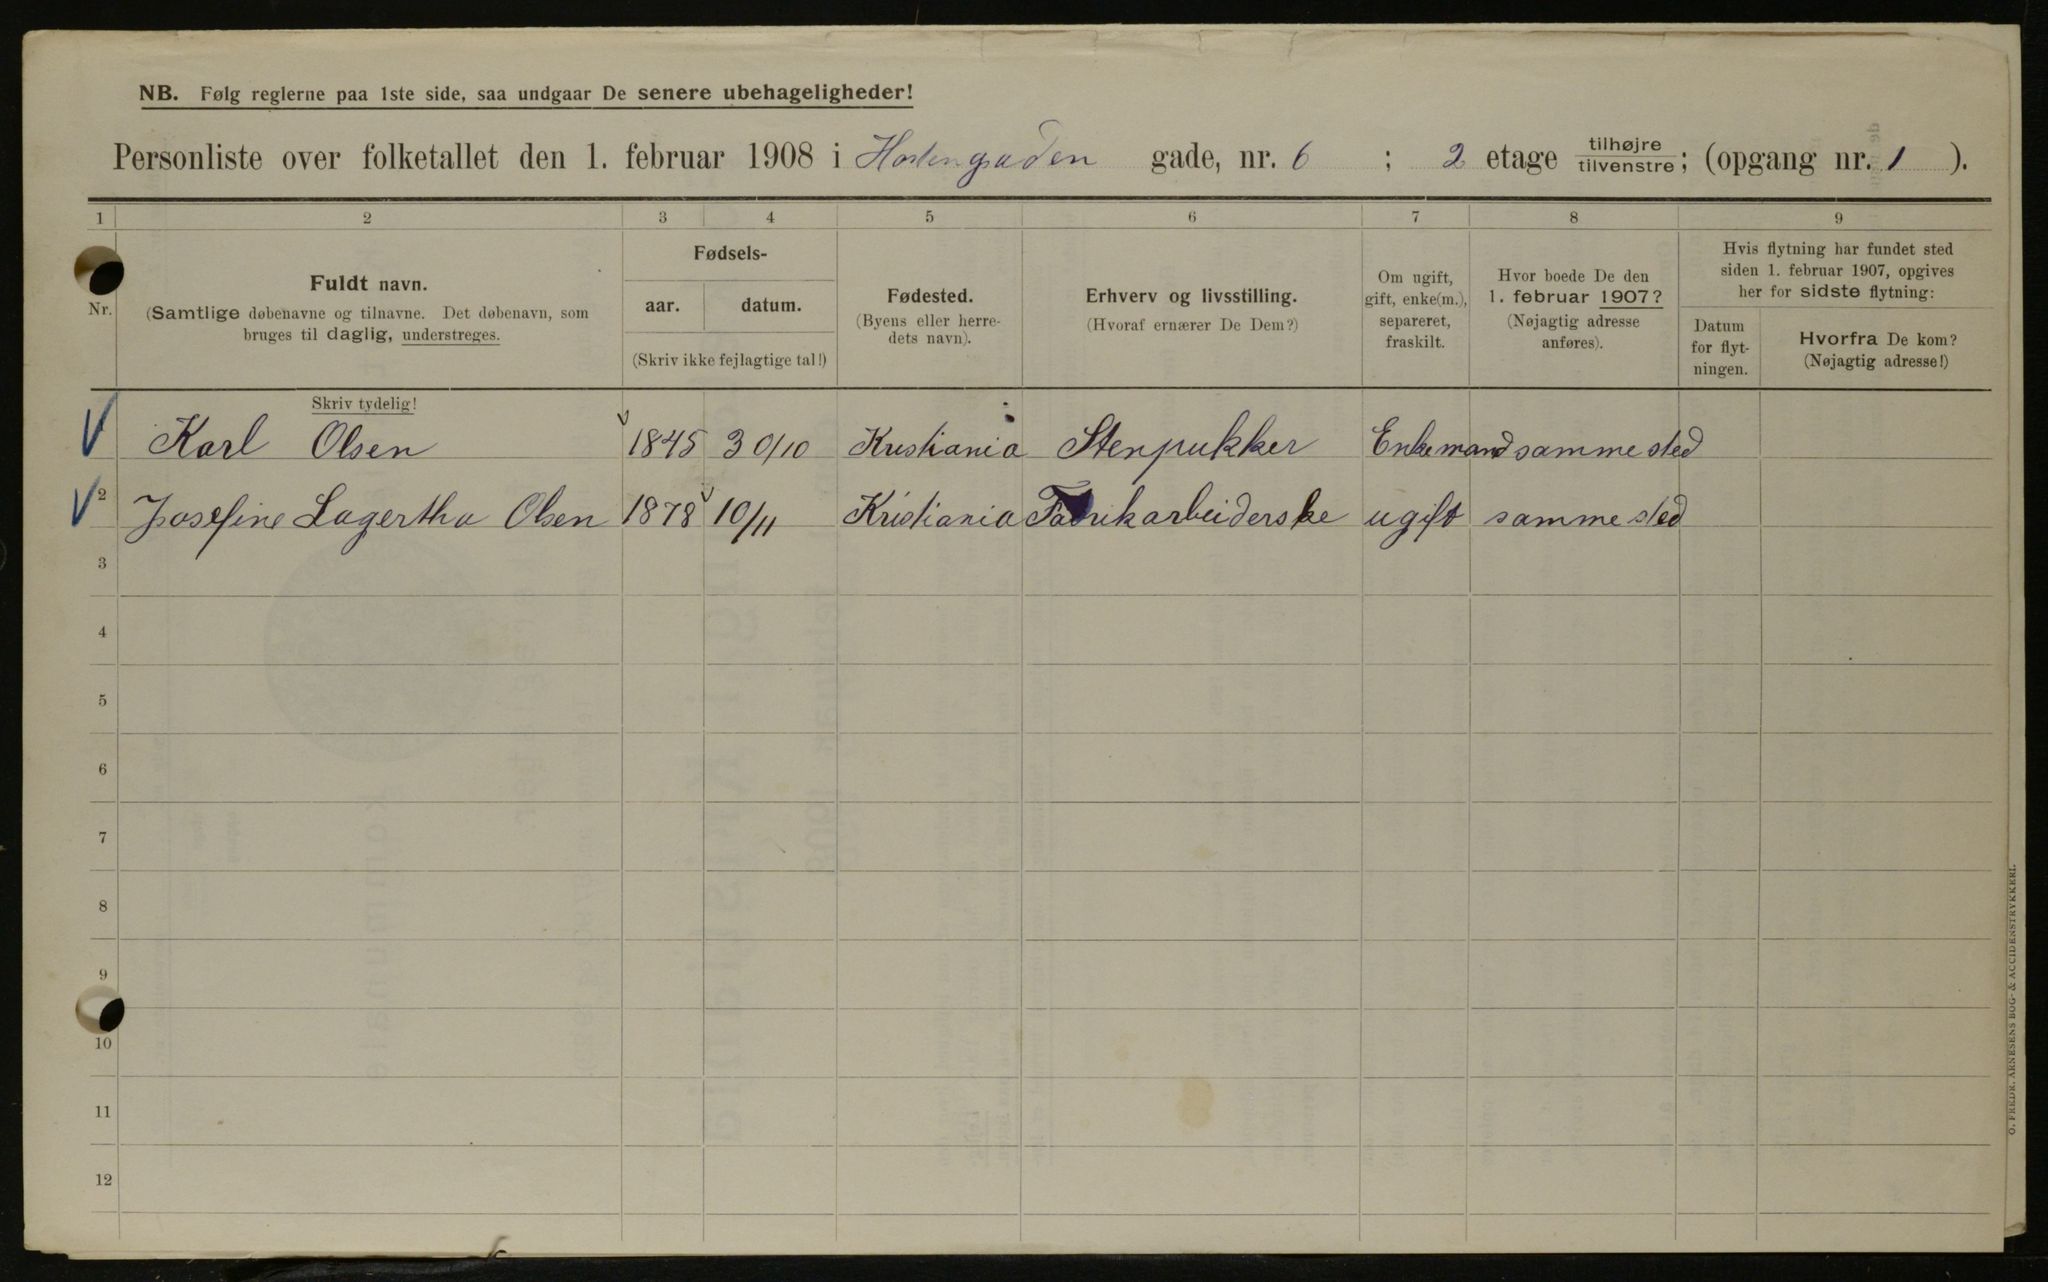 NB. Følg reglerne paa 1ste side, saa undgaar De senere ubehageligheder!
Personliste over folketallet den 1. februar 1908 i Hortengaden gade, nr. 6 ; 2 etage tilhøjre tilvenstre; (opgang nr. 1 ).
1 2 3 4 5 6 7 8 9
Nr.
Fuldt navn.
(Samtlige døbenavne og tilnavne. Det døbenavn, som
bruges til daglig, understreges.
Fødsels-
aar. datum.
(Skriv ikke fejlagtige tal!)
Fødested.
(Byens eller herre-
dets navn).
Erhverv og livsstilling.
(Hvoraf ernærer De Dem?)
Om ugift,
gift, enke(m.),
separeret,
fraskilt.
Hvor boede De den
1. februar 1907?
(Nøjagtig adresse
anføres).
Hvis flytning har fundet sted
siden 1. februar 1907, opgives
her for sidste flytning:
Datum
for flyt-
ningen.
Hvorfra De kom?
(Nøjagtig adresse!)
Skriv tydelig!
Karl Olsen 1845 30/10 Kristiania Stenpukker Enkemand sammested
2 Josefine Lagertha Olsen 1878 10/11 Kristiania Fabrikarbeiderske ugift sammested
3
4
5
6
7
8
9
10
11
12
O. FREDR. ARNESENS BOG- & ACCIDENSTRYKKERI.